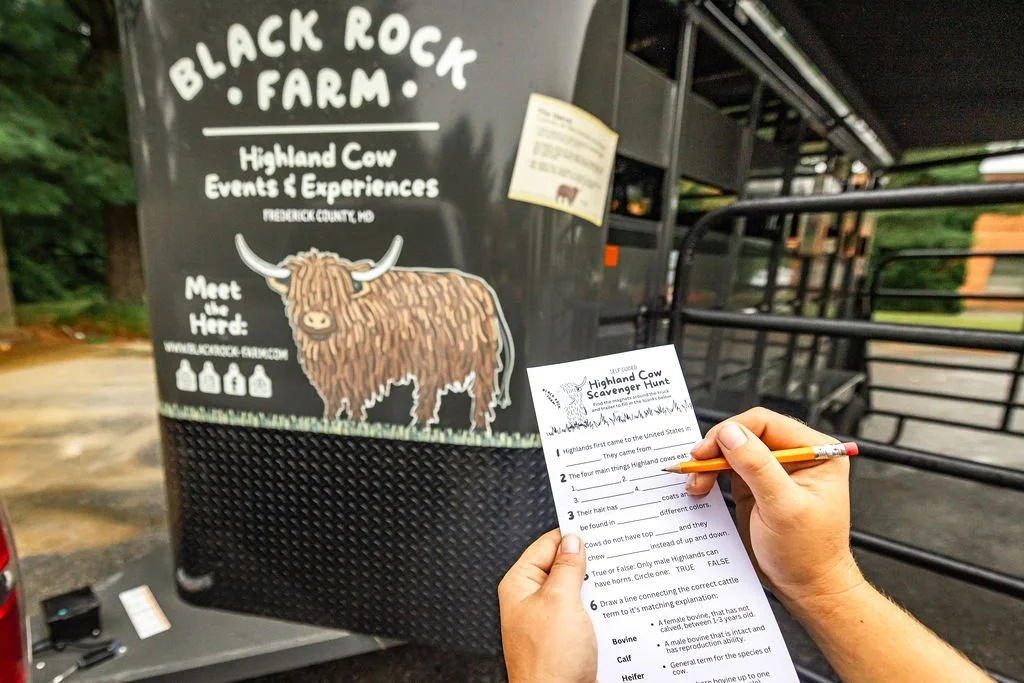 BLACK ROCK
• FARM •
Highland Cow
Events & Experiences
FREDERICK COUNTY, MD
Meet
the
Herd:
WWW.BLACKROCK-FARM.COM
SELF GUIDED
Highland Cow
Scavenger Hunt
Find the magnets around the truck
and trailer to fill in the blanks below
1 Highlands first came to the United States in
________. They came from
2 The four main things Highland cows eat:
1.________ 2.
3.________ 4.
3 Their hair has ________ coats
be found in ________ different colors.
Cows do not have top _____ and they
chew ________ instead of up and down.
True or False: Only male Highlands can
have horns. Circle one: TRUE FALSE
6 Draw a line connecting the correct cattle
term to it's matching explanation:
• A female bovine, that has not
calved, between 1-3 years old.
Bovine
• A male bovine that is intact and
has reproduction ability.
Calf
• General term for the species of
cow.
Heifer
bovine up to one